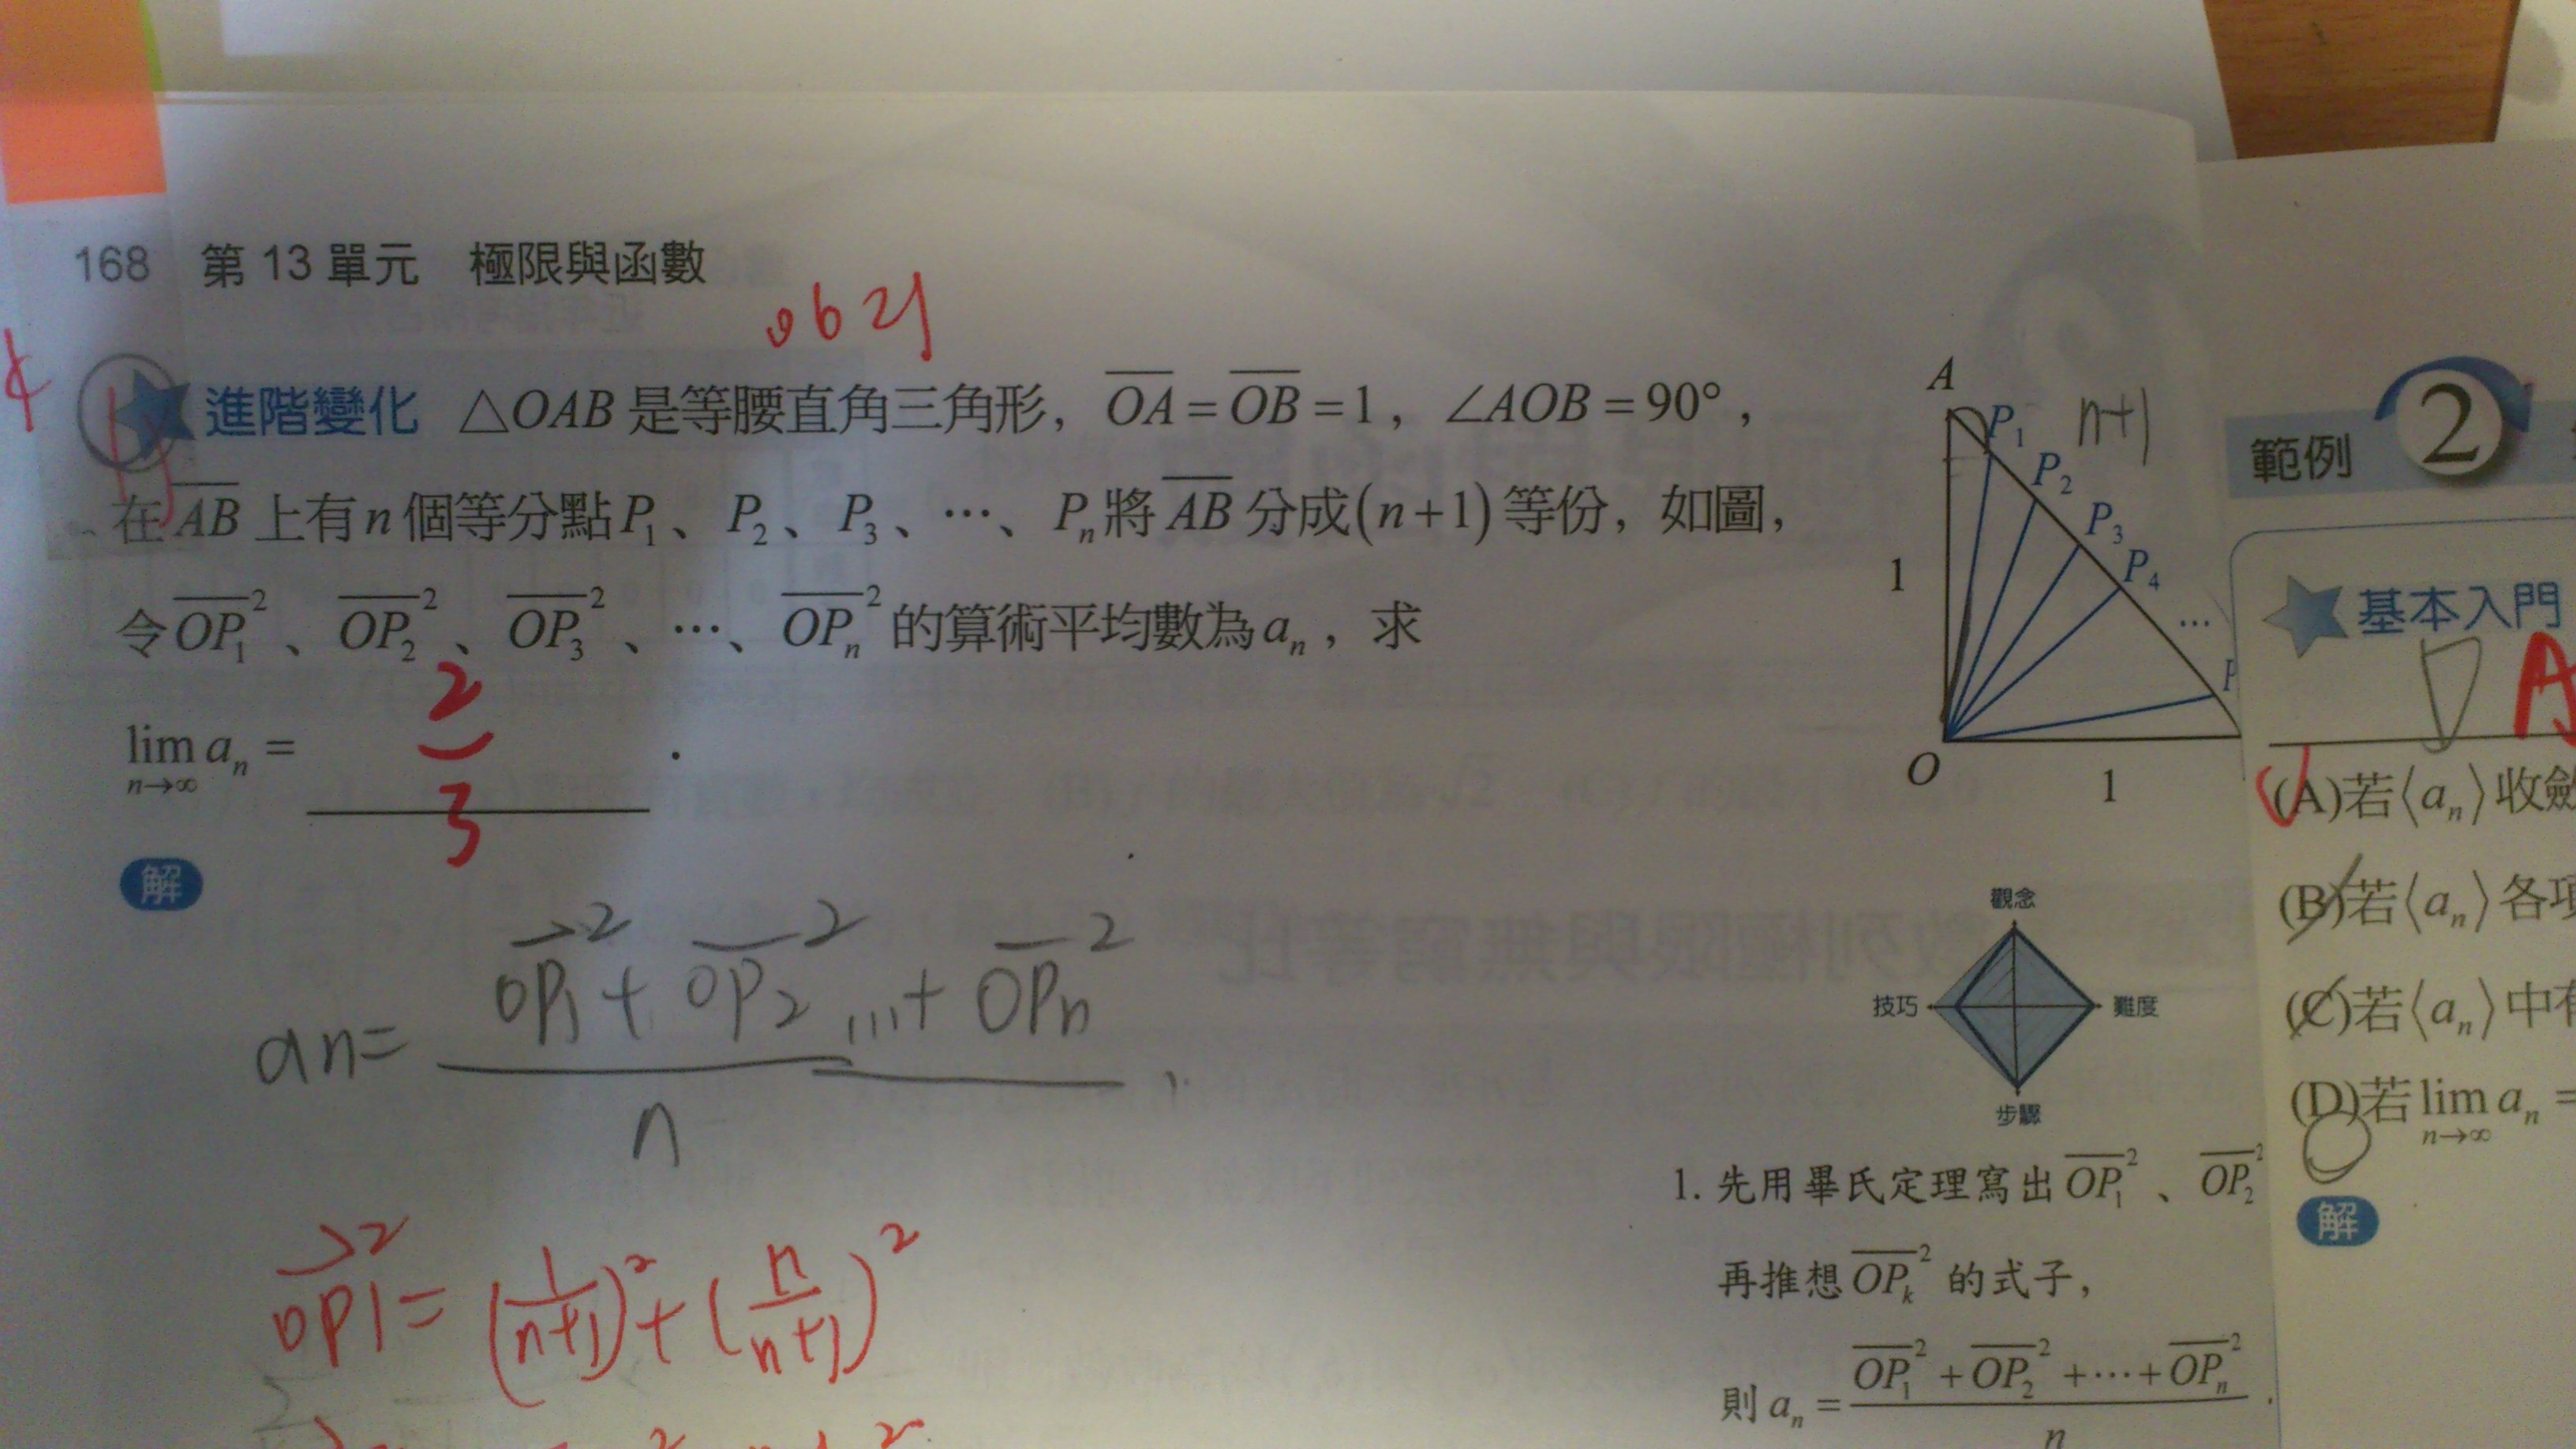 168 第 13 單元 極限與函數
0621
進階變化 △OAB 是等腰直角三角形, OA = OB = 1, ∠AOB = 90°,
在 AB 上有 n 個等分點 P₁、P₂、P₃、…、Pₙ 將 AB 分成 (n+1) 等份, 如圖,
令 OP₁²、OP₂²、OP₃²、…、OPₙ² 的算術平均數為 aₙ, 求
lim aₙ = 2/3 .
n→∞
解
an = (OP1² + OP2² ... + OPn²) / n
OP1² = (1/(n+1))² + (n/(n+1))²
A
P₁
n+1
P₂
P₃
P₄
…
1
O
1
觀念
技巧 難度
步驟
1. 先用畢氏定理寫出 OP₁²、OP₂²
再推想 OPₖ² 的式子,
則 aₙ = (OP₁² + OP₂² + ⋯ + OPₙ²) / n .
範例 2
基本入門
A
(A)若⟨aₙ⟩收斂
(B)若⟨aₙ⟩各項
(C)若⟨aₙ⟩中有
(D)若 lim aₙ =
n→∞
解